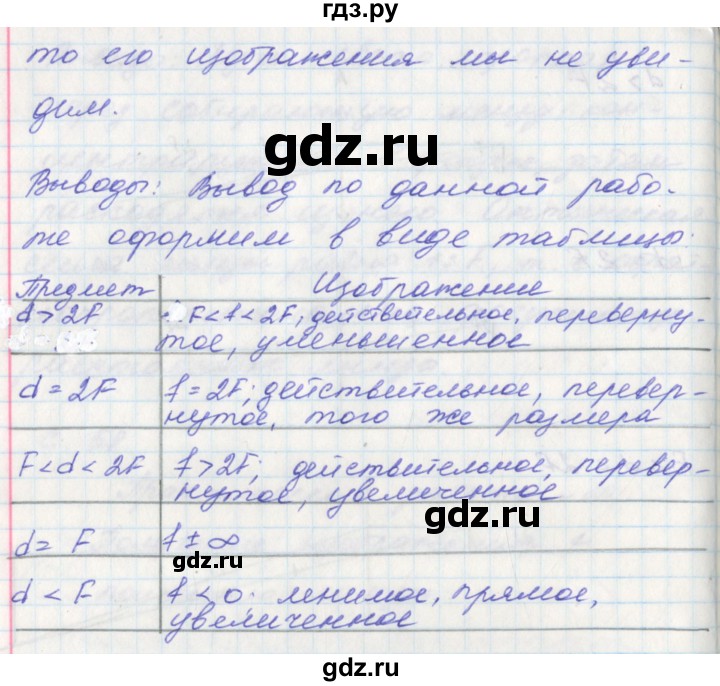 гдз.ру
то его изображения мы не уви-
дим.
gdz.ru
Выводы: Вывод по данной рабо-
те оформим в виде таблицы:
Предмет Изображение
d > 2F F < f < 2F; действительное, переверну-
тое, уменьшенное
d = 2F f = 2F; действительное, перевер-
нутое, того же размера
F < d < 2F f > 2F; действительное, перевер-
нутое, увеличенное
gdz.ru
d = F f ± ∞
d < F f < 0: мнимое, прямое,
увеличенное
gdz.ru